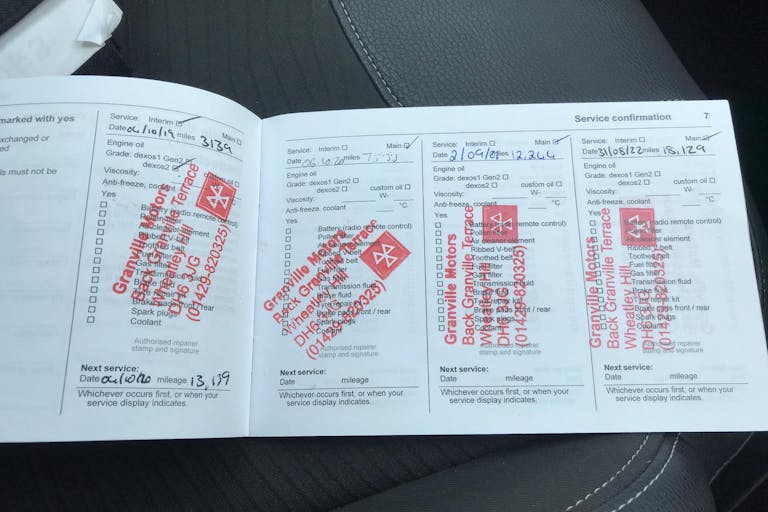 marked with yes
xchanged or
ed
ls must not be
Service: Interim
Main
Date 04/10/19 miles 3139
Engine oil
Grade: dexos1 Gen2
dexos2
custom oil
Viscosity:
Anti-freeze, coolant
Yes
Battery (radio remote control)
Ribbed V-belt
Toothed belt
Fuel filter
Gas filter
Brake fluid
Brake pads front / rear
Spark plugs
Coolant
Granville Motors
Back Granville Terrace
Wheatley Hill
DH6 3JG
(01429-820325)
Authorised repairer
stamp and signature
Next service:
Date 04/10/20 mileage 13,139
Whichever occurs first, or when your
service display indicates.
Service confirmation 7
Service: Interim Main
Date 06.10.20 miles
Engine oil
Grade: dexos1 Gen2
dexos2
custom oil
Viscosity: W-
Anti-freeze, coolant °C
Yes
Battery (radio remote control)
Ribbed V-belt
Toothed belt
Gas filter
Transmission fluid
Brake fluid
Brake pads front / rear
Spark plugs
Coolant
Granville Motors
Back Granville Terrace
Wheatley Hill
DH6 3JG
(01429-820325)
Authorised repairer
stamp and signature
Next service:
Date mileage
Whichever occurs first, or when your
service display indicates.
Service: Interim Main
Date 2/09/21 miles 12,244
Engine oil
Grade: dexos1 Gen2
dexos2
custom oil
Viscosity: W-
Anti-freeze, coolant °C
Yes
Battery (radio remote control)
Air cleaner element
Ribbed V-belt
Toothed belt
Fuel filter
Gas filter
Transmission fluid
Brake fluid
Tyre repair kit
Brake pads front / rear
Spark plugs
Coolant
Granville Motors
Back Granville Terrace
Wheatley Hill
DH6 3JG
(01429-820325)
Authorised repairer
stamp and signature
Next service:
Date mileage
Whichever occurs first, or when your
service display indicates.
Service: Interim Main
Date 31/08/22 miles 18,129
Engine oil
Grade: dexos1 Gen2
dexos2
custom oil
Viscosity: W-
Anti-freeze, coolant °C
Yes
Battery (radio remote control)
Air cleaner element
Ribbed V-belt
Toothed belt
Fuel filter
Gas filter
Transmission fluid
Brake fluid
Tyre repair kit
Brake pads front / rear
Spark plugs
Coolant
Granville Motors
Back Granville Terrace
Wheatley Hill
DH6 3JG
(01429-820325)
Authorised repairer
stamp and signature
Next service:
Date mileage
Whichever occurs first, or when your
service display indicates.